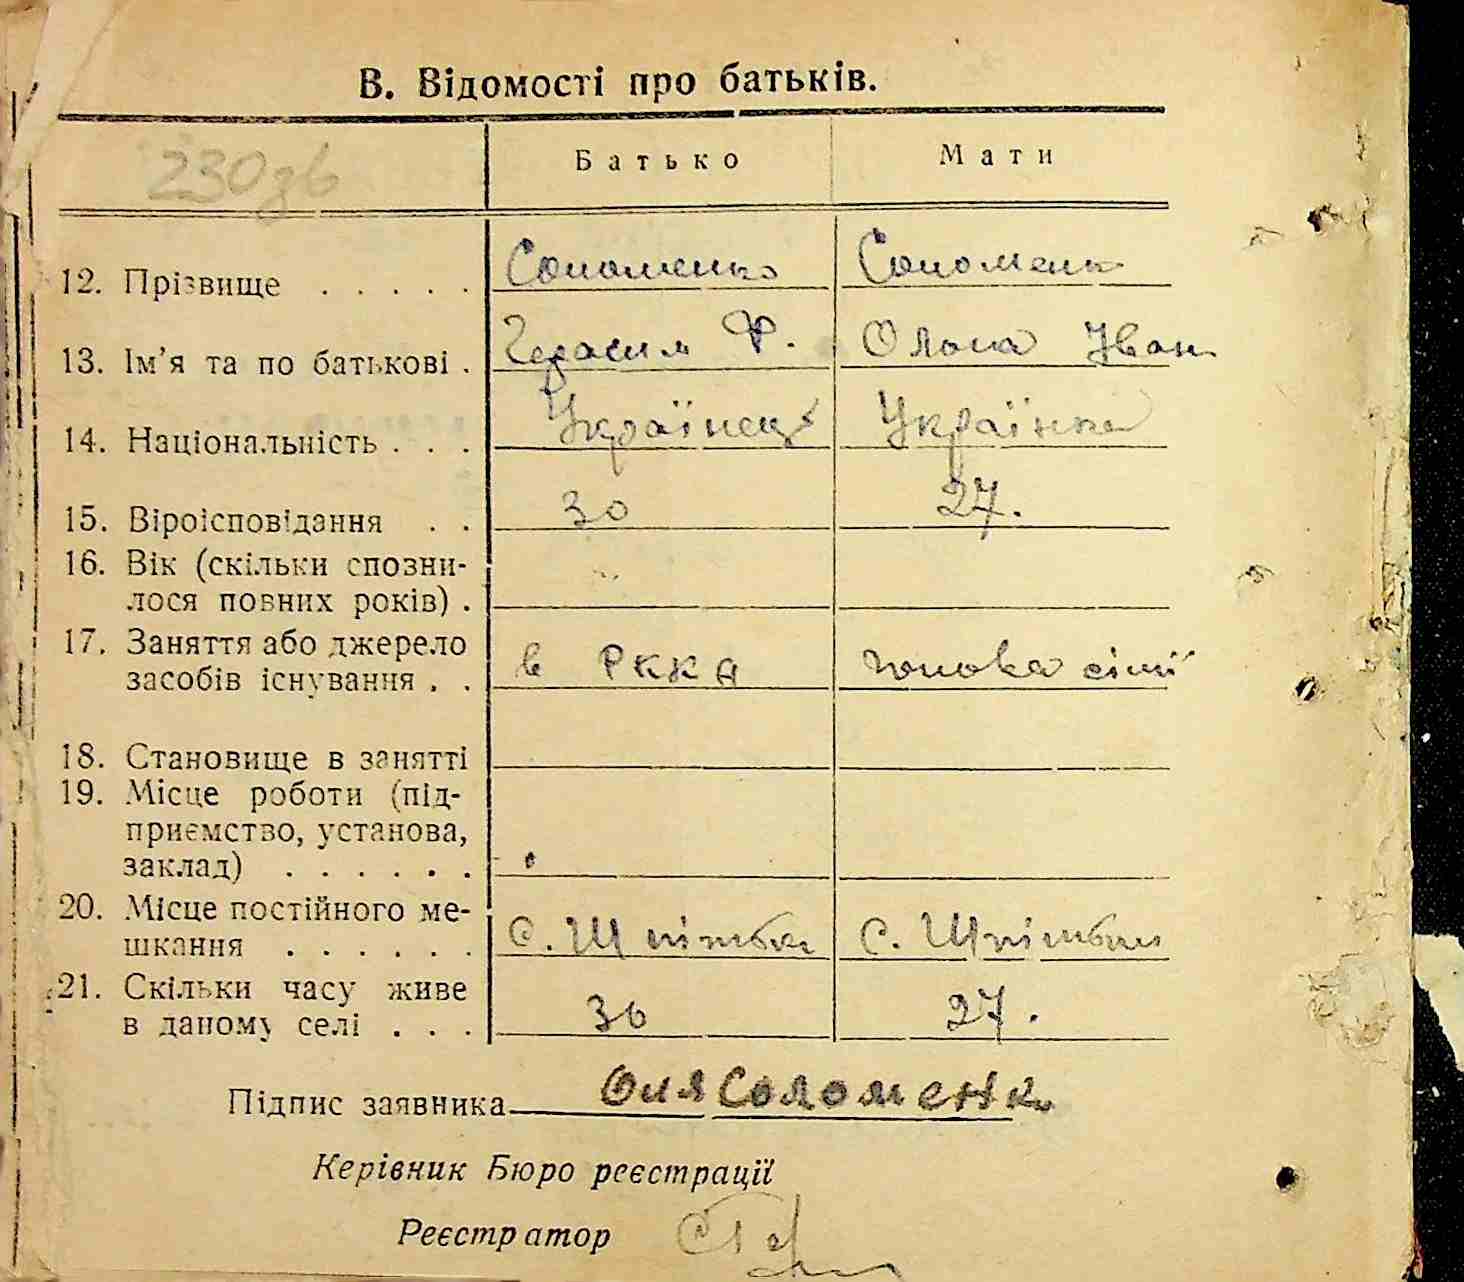 В. Відомості про батьків.
230зв
Батько Мати
12. Прізвище . . . . . Соломенко Соломенк
13. Ім'я та по батькові . Герасим Ф. Олена Іван
14. Національність . . . Українець Українка
15. Віроісповідання . . 30 27.
16. Вік (скільки спозни-
лося повних років) .
17. Заняття або джерело
засобів існування . . в РККА голова сімї
18. Становище в занятті
19. Місце роботи (під-
приємство, установа,
заклад) . . . . . .
20. Місце постійного ме-
шкання . . . . . . с. Шпітьки с. Шпітьки
21. Скільки часу живе
в даному селі . . . 30 27.
Підпис заявника Оля Соломенк
Керівник Бюро реєстрації
Реєстратор